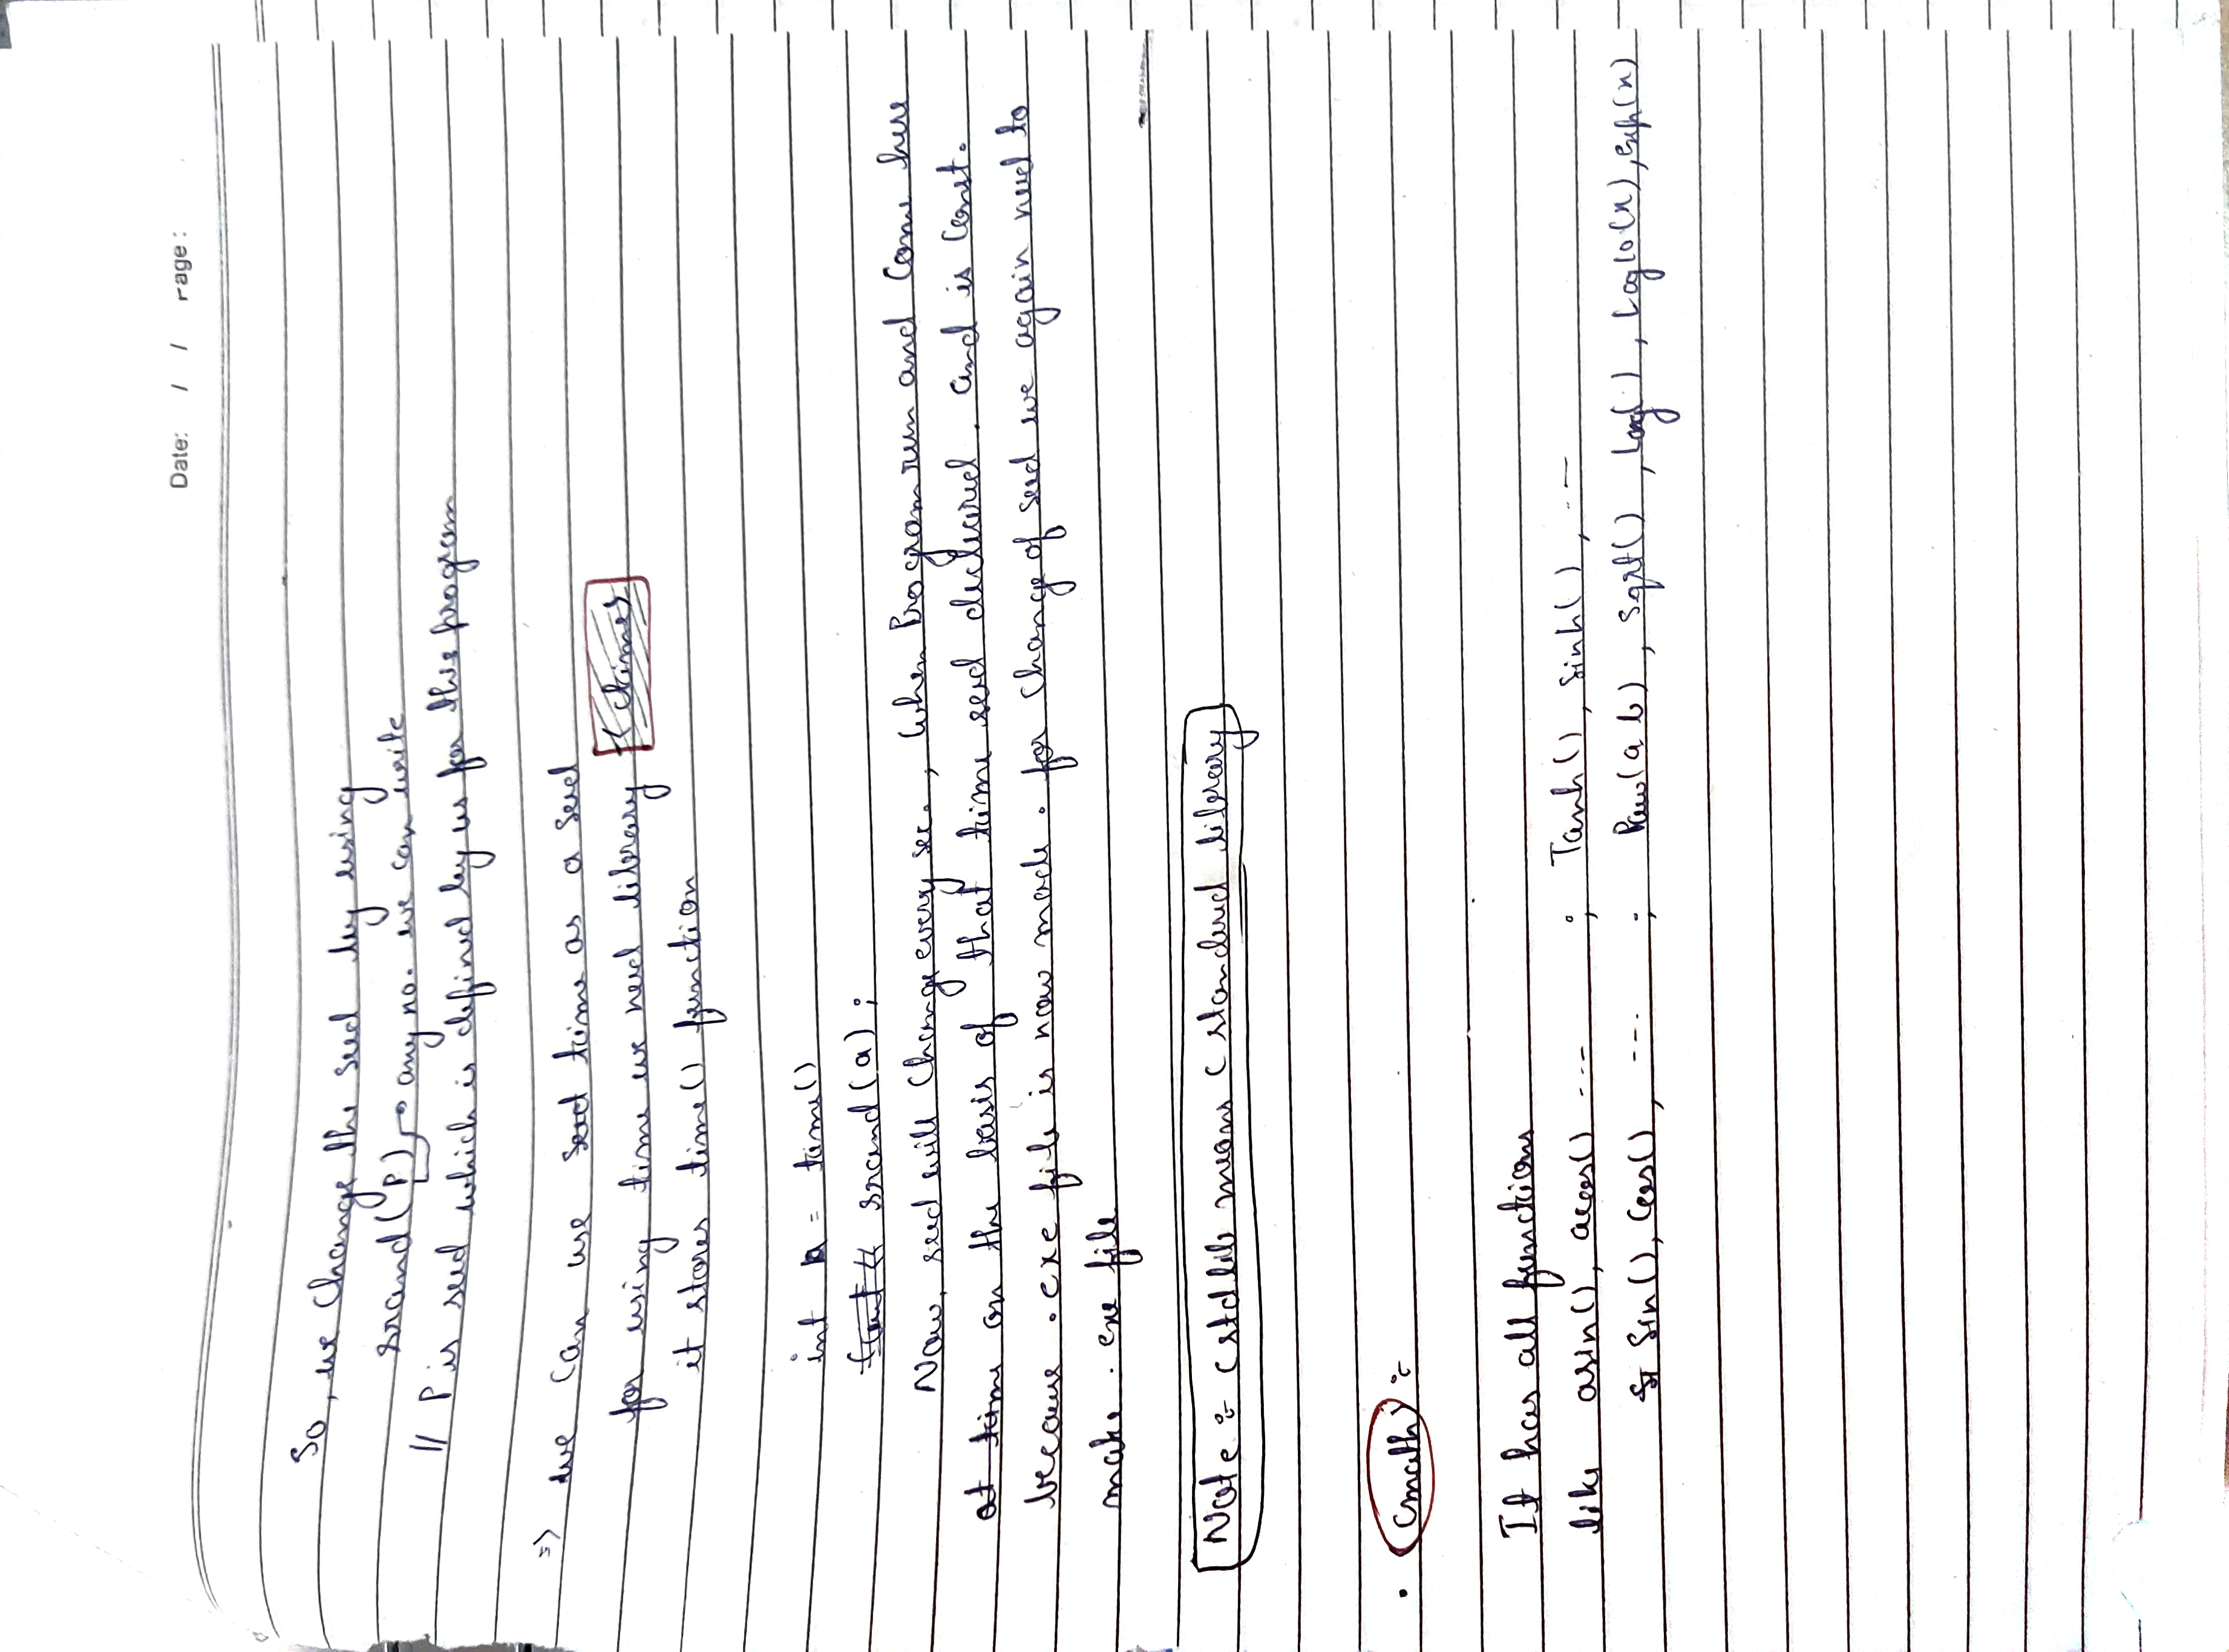 Date: / / Page :
So, we change the seed by using
srand(P) → any no. we can write
// P is seed which is defined by us for this program
=> we can use time as a seed
for using time we need library <ctime>
it stores time() function
int a = time()
srand(a);
Now, seed will change every sec., when Program run and come here
on the basis of that time seed decleared. and is const.
because .exe file is now made. for change of seed we again need to
make .exe file
Note :- cstdlib means c standerd library
• <cmath> :-
It has all functions
like asin(), acos() --- ; Tanh(), Sinh(), ---
Sin(), Cos(), --- ; Pow(a b), Sqrt(), Log( ), Log10(x), exp(x)